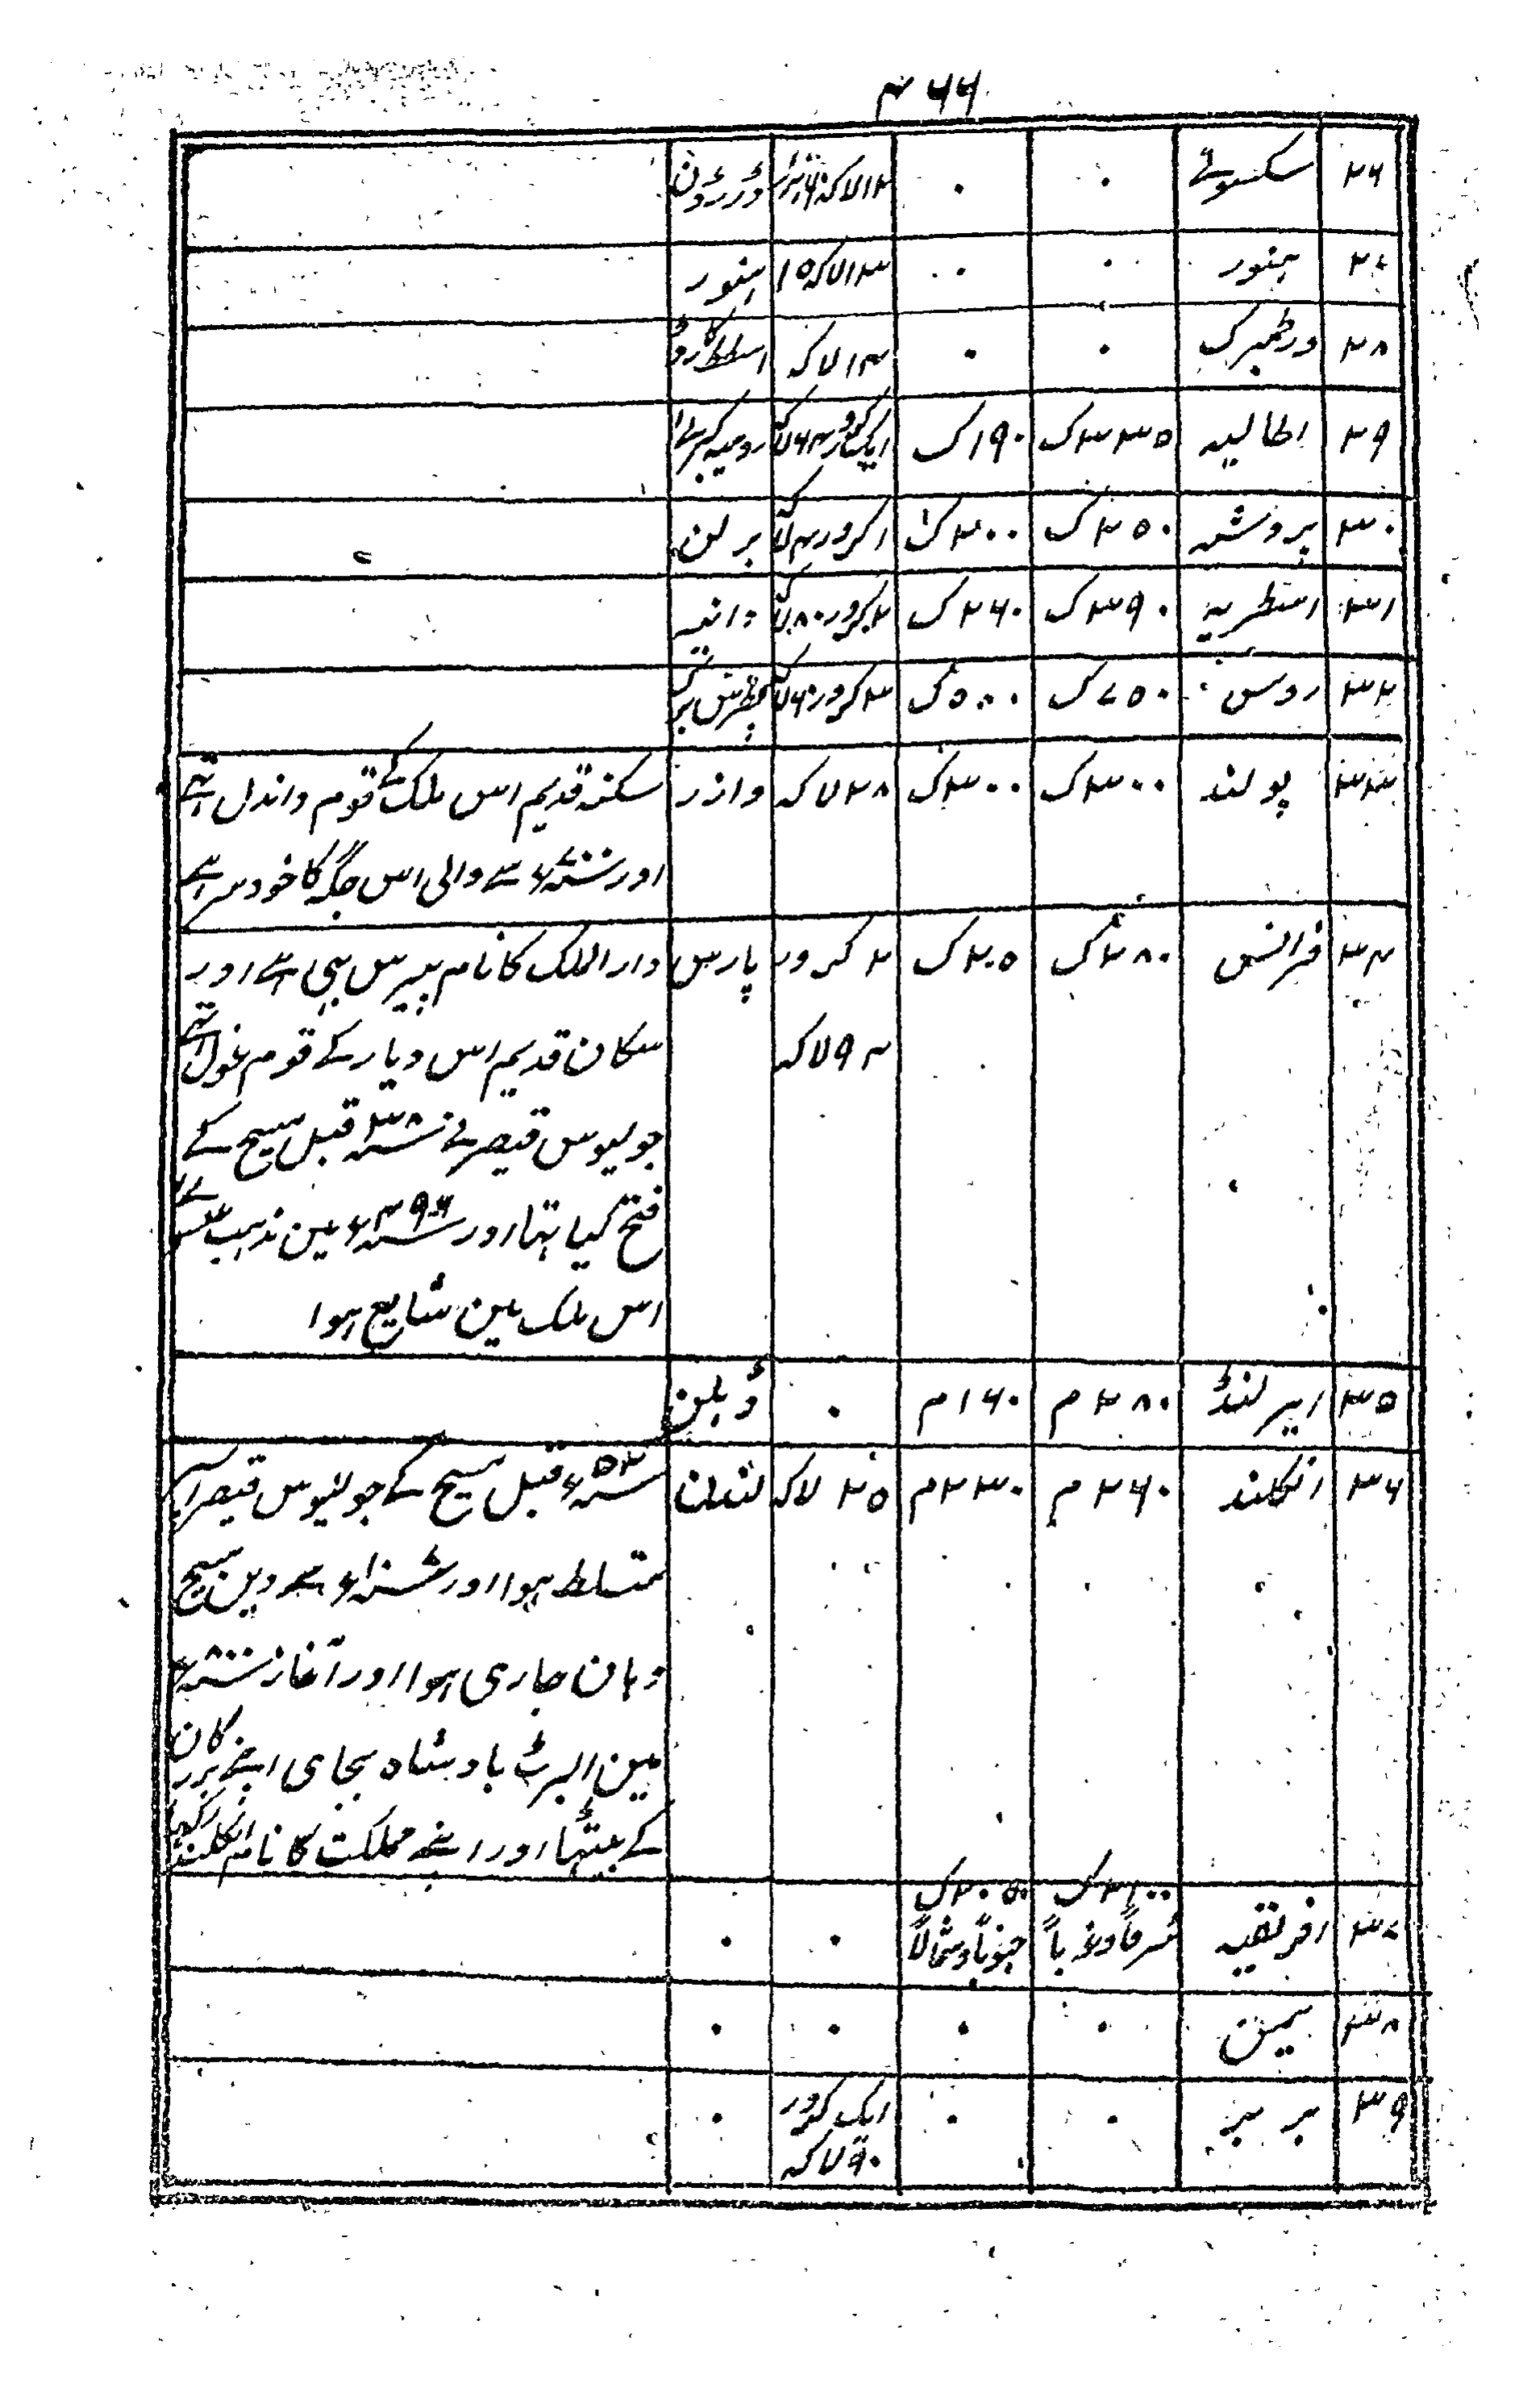 ۴۶۶
۲۶ سکسونے ۰ ۰ ۱۲لاکہ
۲۷ ہنور ۰ ۰ ۱۳لاکہ۱۵ ہنور
۲۸ ورطمبرک ۰ ۰ ۱۴لاکہ
۲۹ اطالیہ ۳۳۵ک ۱۹۰ک رومیہ کبرے
۳۰ پروشہ ۲۵۰ک ۳۰۰ک برلن
۳۱ اسطریہ ۳۹۰ک ۲۶۰ک ۲کرور۸۰لاکہ وانیہ
۳۲ روس ۷۵۰ک ۵۸۰ک ۳کرور۶۰لاکہ
۳۳ پولند ۳۰۰ک ۳۰۰ک ۳۸لاکہ وازر سکنہ قدیم اس ملک کے قوم واندل تہے
اور سے والی اس جگہ کا خودسر ہے
۳۴ فرانس ۲۸۰ک ۲۰۵ک ۲کرور پارس دارالملک کا نام پیرس بہی ہے اور
۹۴لاکہ سکان قدیم اس دیار کے قوم غول تہے
جولیوس قیصر نے سنہ ۳۸ قبل مسیح کے
فتح کیا تہا اور سنہ ۴۹۶ء مین مذہب
اس ملک مین شایع ہوا
۳۵ ایرلنڈ ۲۸۰م ۱۶۰م ۰ ڈبلن
۳۶ انگلند ۲۶۰م ۲۳۰م ۲۵ لاکہ لندن سنہ ۵۳ء قبل مسیح کے جولیوس قیصر
متسلط ہوا اور سے دین مسیح
وہان جاری ہوا اور آغاز سنہ ۸۰۰ء
مین البرٹ بادشاہ بجای اپنے بزرگان
کے بیٹہا اور اپنے مملکت کا نام انگلند رکہا
۳۷ افریقیہ ۲۱۰۰ک شرقاً وغرباً ۲۰۵۰ک جنوباً وشمالاً ۰ ۰
۳۸ یمن ۰ ۰ ۰ ۰
۳۹ بربر ۰ ۰ ایک کرور ۹۰لاکہ ۰